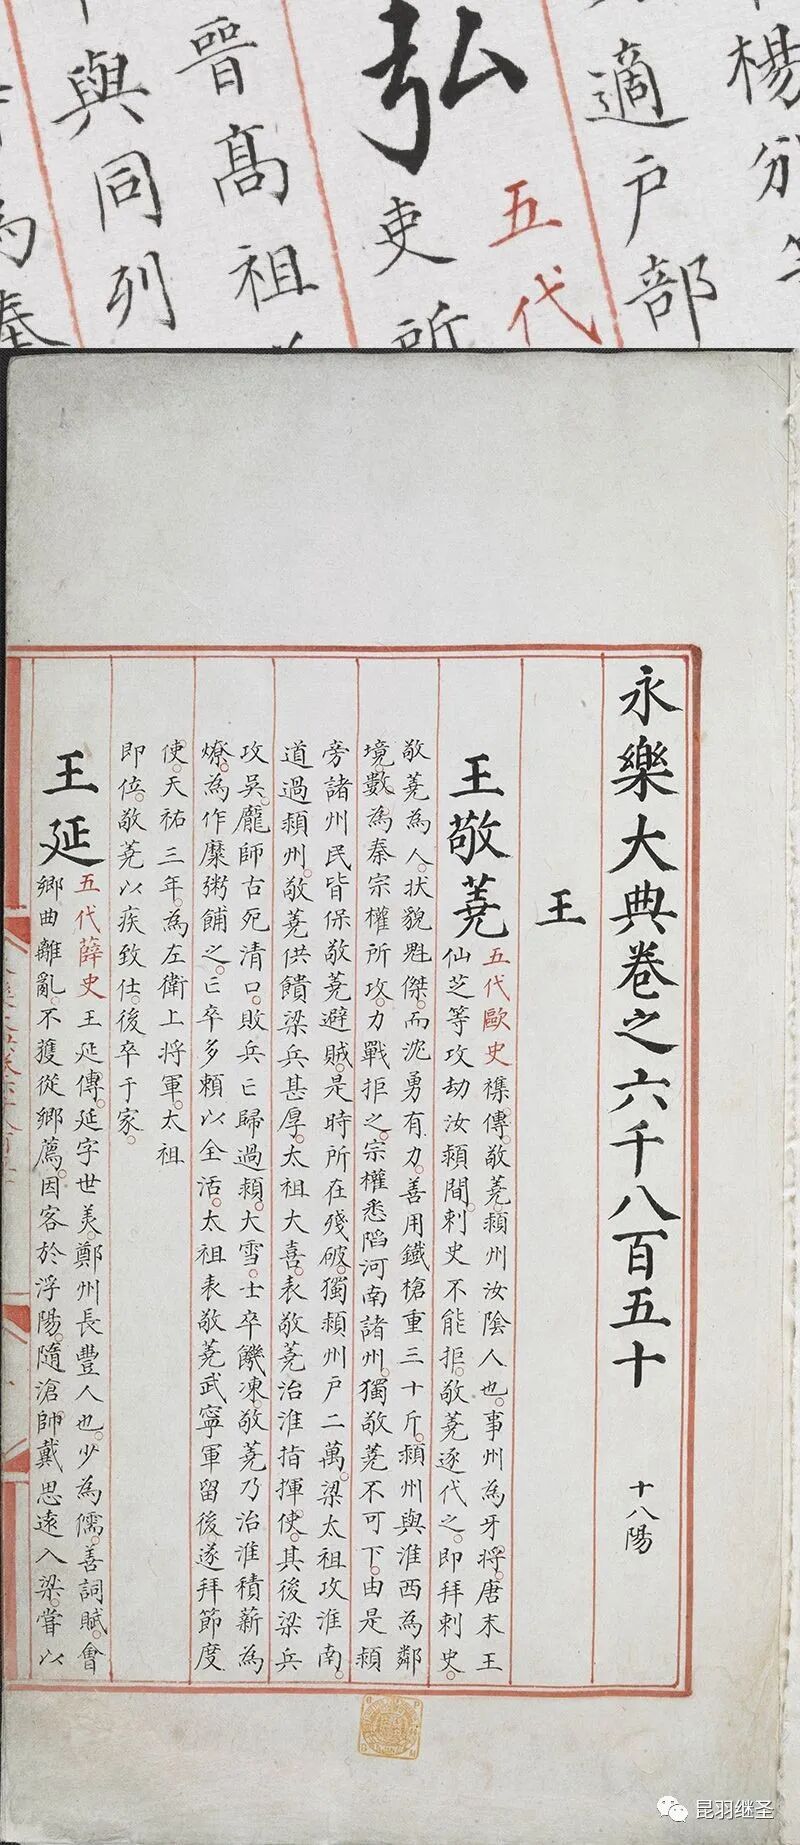 楊
適戶部
五代
弘吏所
晉高祖
與同列
為秦
永樂大典卷之六千八百五十 十八陽
王
王敬蕘 五代歐史襍傳。敬蕘。潁州汝陰人也。事州為牙將。唐末王
仙芝等攻劫汝潁間。刺史不能拒。敬蕘逐代之。即拜刺史。
敬蕘為人。狀貌魁傑。而沈勇有力。善用鐵槍重三十斤。潁州與淮西為鄰
境。數為秦宗權所攻。力戰拒之。宗權悉陷河南諸州。獨敬蕘不可下。由是潁
旁諸州民皆保敬蕘避賊。是時所在殘破。獨潁州戶二萬。梁太祖攻淮南。
道過潁州。敬蕘供饋梁兵甚厚。太祖大喜。表敬蕘沿淮指揮使。其後梁兵
攻吳。龐師古死清口。敗兵亡歸過潁。大雪。士卒饑凍。敬蕘乃沿淮積薪為
燎。為作糜粥餔之。亡卒多賴以全活。太祖表敬蕘武寧軍留後。遂拜節度
使。天祐三年。為左衛上將軍。太祖
即位。敬蕘以疾致仕。後卒于家。
王延 五代薛史王延傳。延字世美。鄭州長豐人也。少為儒。善詞賦。會
鄉曲離亂。不獲從鄉薦。因客於浮陽。隨滄帥戴思遠入梁。嘗以
昆羽继圣